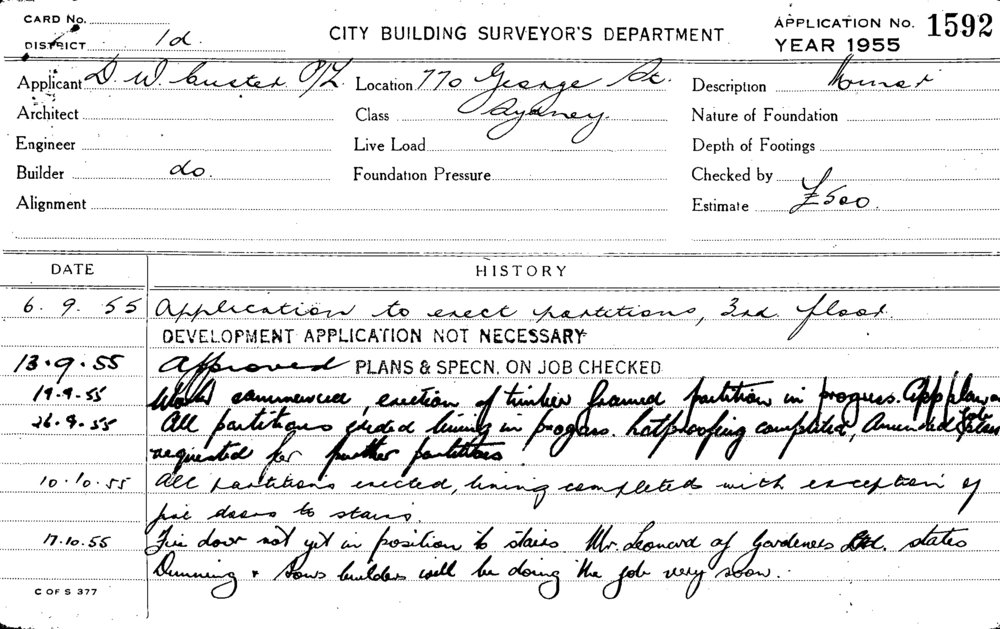 CARD No.
CITY BUILDING SURVEYOR'S DEPARTMENT
APPLICATION No. 1592
DISTRICT 1d.
YEAR 1955
Applicant D. W. P/L. Location 770 George St. Description Minor
Architect Class Sydney. Nature of Foundation
Engineer Live Load Depth of Footings
Builder do. Foundation Pressure Checked by
Alignment Estimate £500.
DATE HISTORY
6. 9. 55 Application to erect partitions, 3rd. floor.
DEVELOPMENT APPLICATION NOT NECESSARY
13.9.55 Approved PLANS & SPECN. ON JOB CHECKED
19.9.55 Work commenced, erection of timber framed partition in progress. App plan on Job
26.9.55 All partitions erected lining in progress. completed, Amended plan
requested for further partitions
10.10.55 All partitions erected, lining completed with exception of
fire doors to stairs.
17.10.55 Fire door not yet in position to stairs Mr. Leonard of Gardeners Ltd. states
Dunning & Sons builders will be doing the job very soon.
C OF S 377